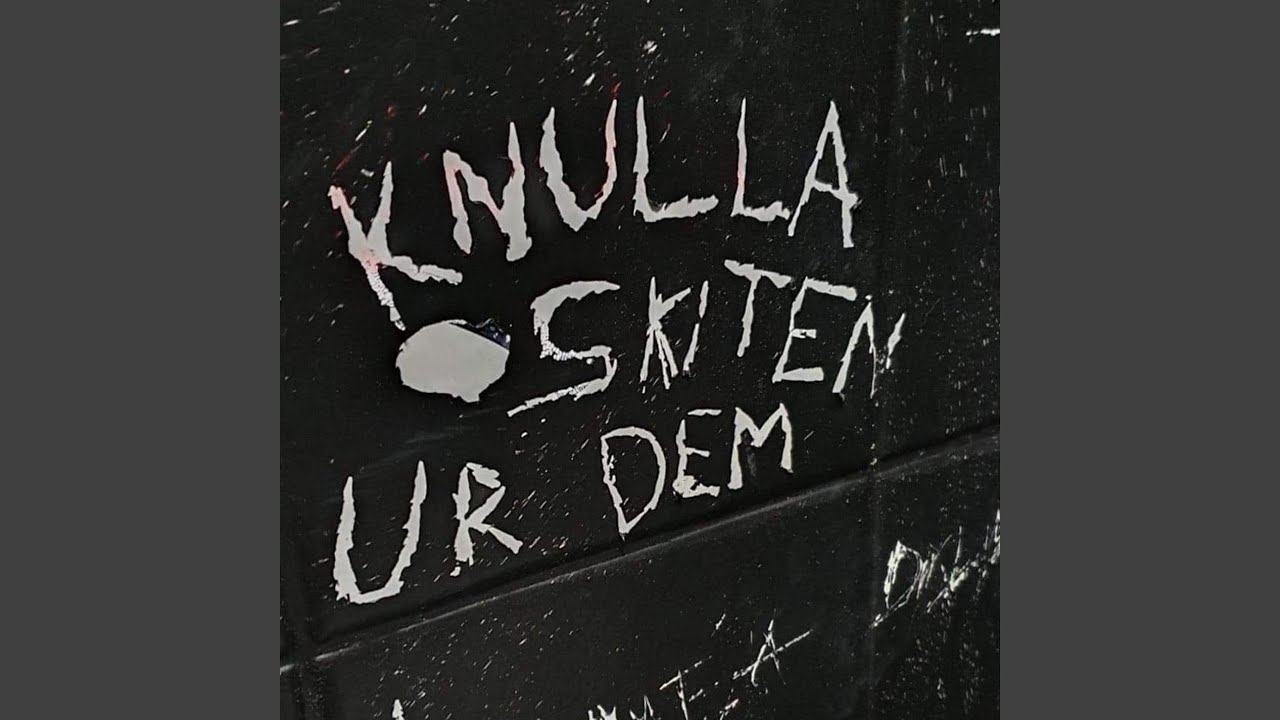 KNULLA
SKITEN
UR DEM